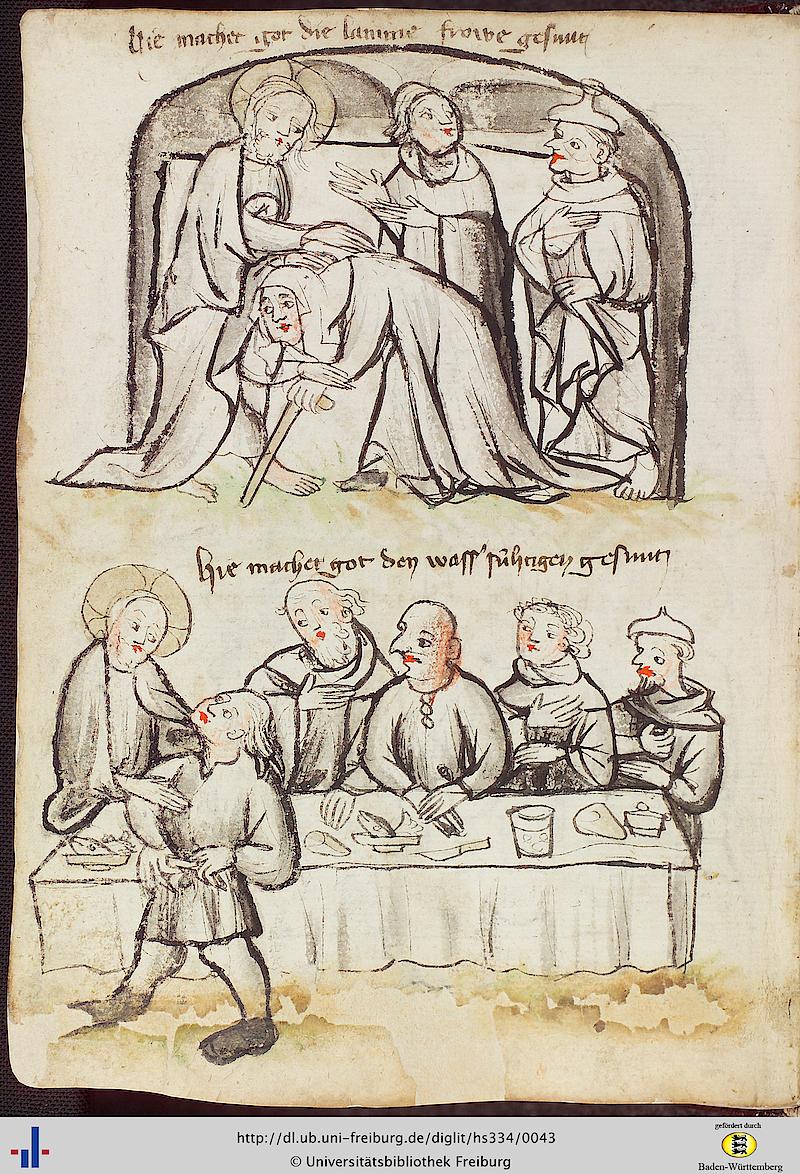 Hie machet got die lamme frowe gesunt
Hie machet got den wassersúhtigen gesunt
http://dl.ub.uni-freiburg.de/diglit/hs334/0043
© Universitätsbibliothek Freiburg
gefördert durch
Baden-Württemberg